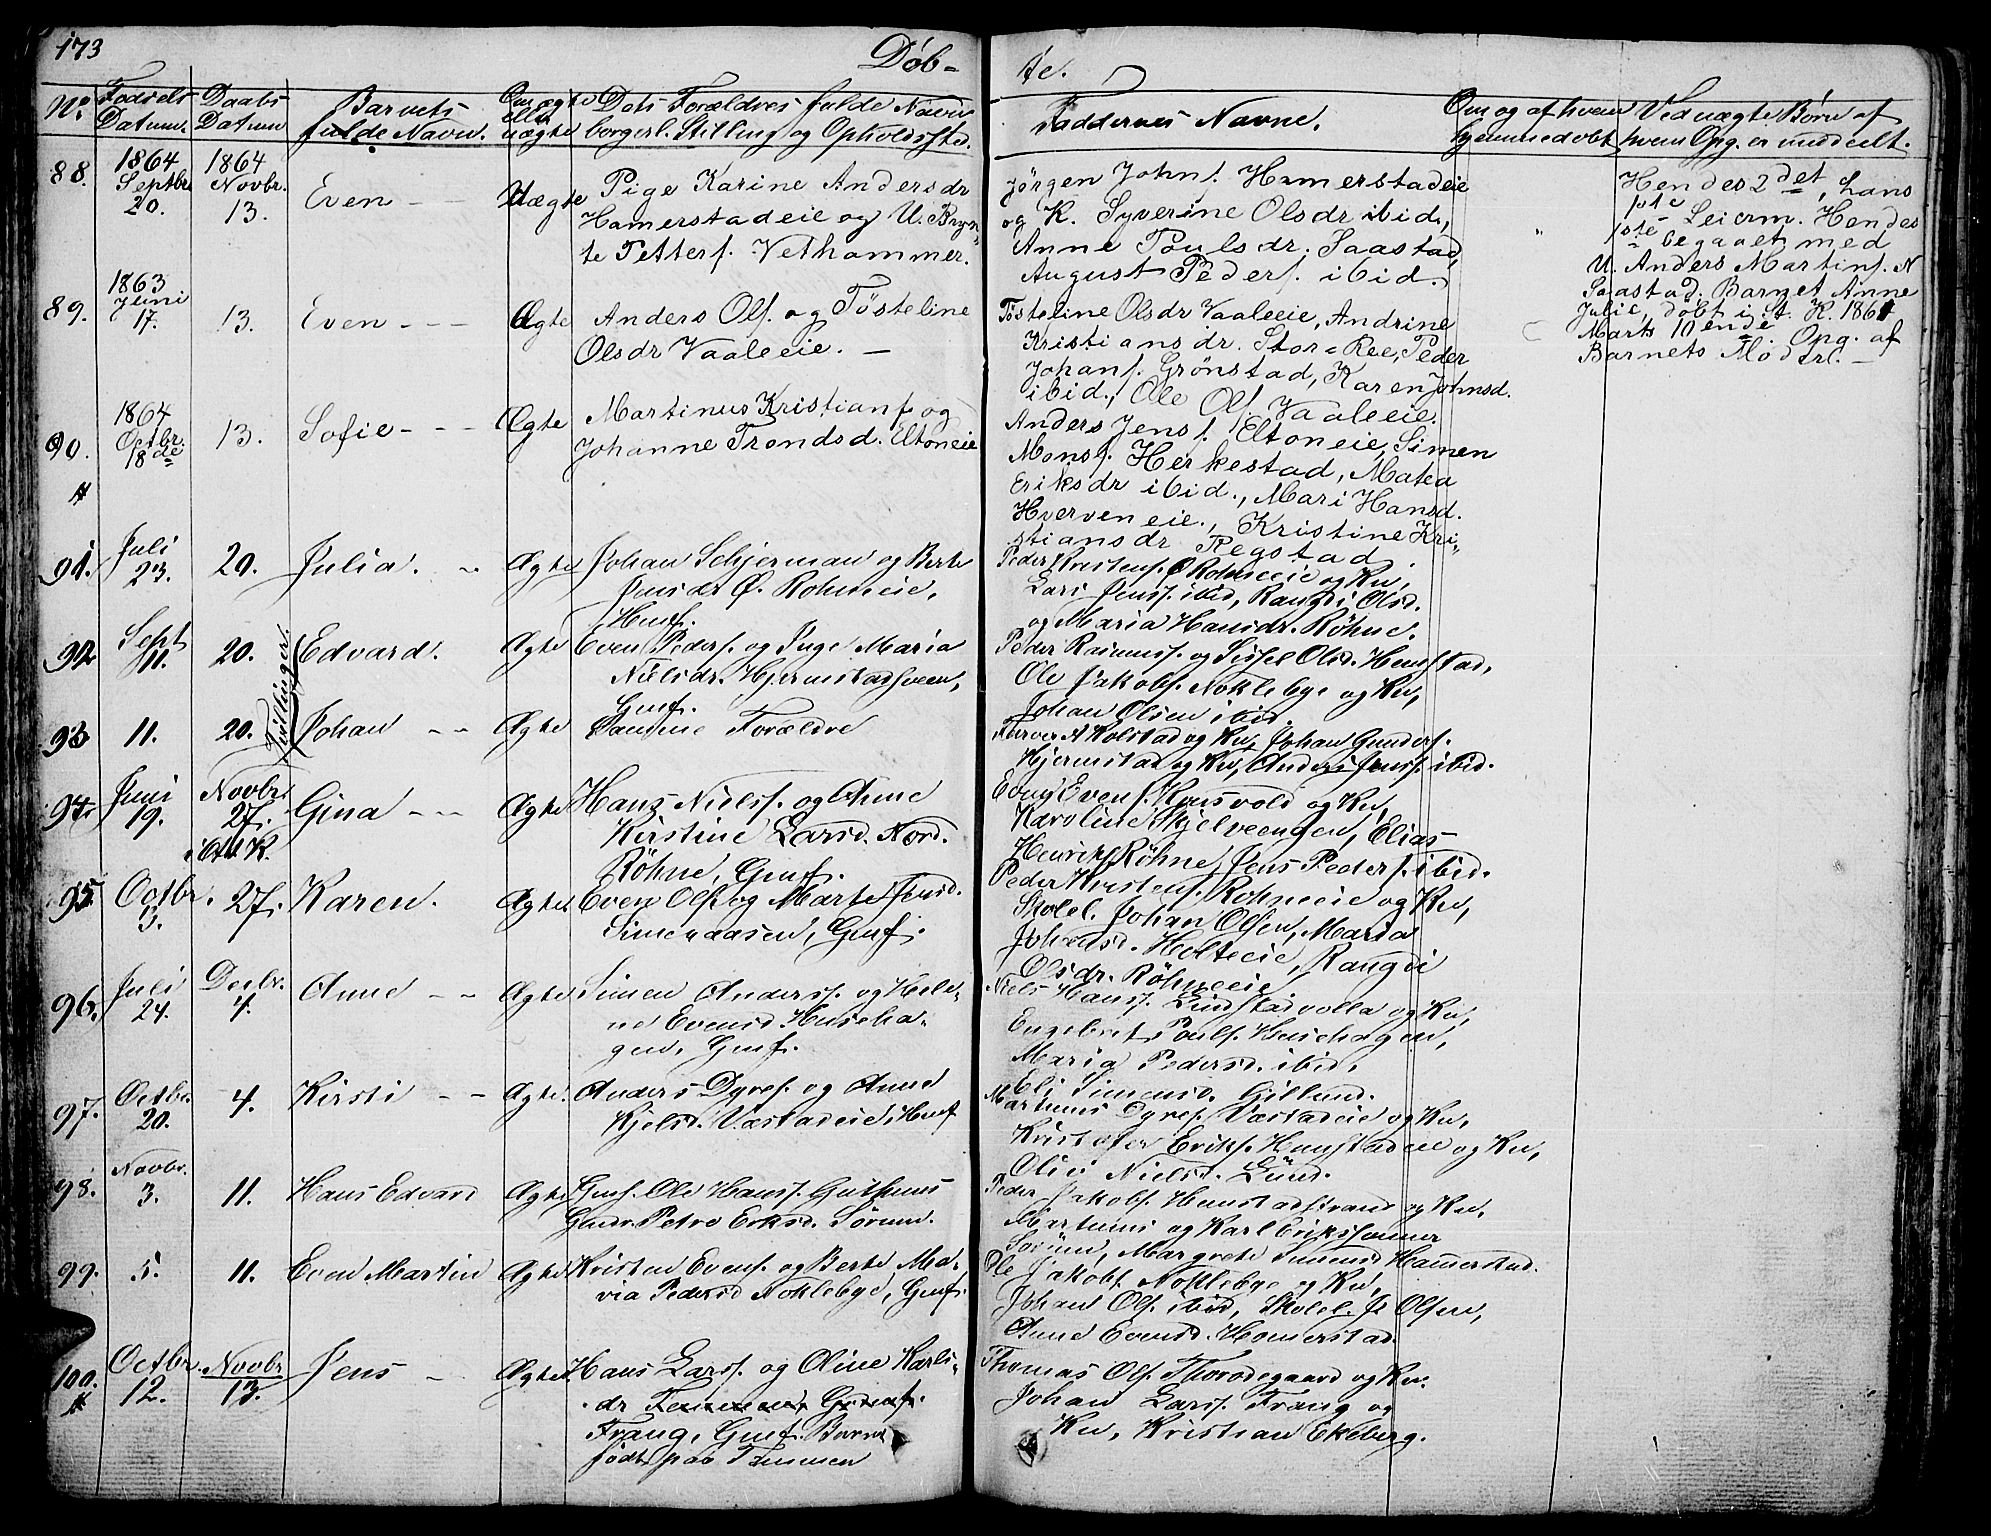 173
Døb-
te.
No.
Fødsels
Datum.
Daabs
Datum
Barnets
fulde Navn.
Om ægte
eller
uægte
Dets Forældres fulde Navn
borgerl. Stilling og Opholdssted.
Faddernes Navne.
Om og af hvem
hjemmedøbt
Ved uægte Børn af
hvem Opg. er meddeelt.
88.
1864
Septbr.
20.
1864
Novbr.
13.
Even
Uægte
Pige Karine Andersdr
Hamerstadeie og U. Bryn-
te Petters. Vethammer.
Jørgen Johns. Hamerstadeie
og K. Syverine Olsdr ibid,
Anne Poulsdr. Saastad,
August Peders. ibid.
Hendes 2det, hans
1ste Leierm. Hendes
1ste begaaet med
U. Anders Martins. N
Saastad. Barnet Anne
Julie, døbt i St. K. 1861
Marts 10ende. Opg. af
Barnets Moder. —
89.
1863
Juni
17.
13.
Even
Ægte
Anders Ols. og Tøsteline
Olsdr Vaaleeie. —
Tøsteline Olsdr Vaaleeie, Andrine
Kristiansdr. Stor-Ree, Peder
Johans. Grönstad, Karen Johnsd.
ibid., Ole Ols. Vaaleeie.
90.
1864
Octbr.
18de
13.
Sofie
Ægte
Martinus Kristians. og
Johanne Trondsd. Eltoneie
Anders Jens. Eltoneie, Simen
Mons. Herkestad, Matea
Eriksdr ibid., Mari Hansd.
Hverveneie., Kristine Kri-
stiansdr Regstad.
91.
Juli
23.
20.
Julia.
Ægte
Johan Schjerman og Berte
Jensdr Ø. Rohneeie,
Huusf.
Peder Kristens. Ø Rohneeie og Ku,
Lars Jenss. ibid, Rangdi Olsd.
og Maria Hansdr. Röhne.
92
Sept
11.
20.
Tvillinger
Edvard.
Ægte
Even Peders. og Inge Maria
Nielsdr. Hjermstadsveen,
Gmf.
Peder Rasmuss. og Sissel Olsd. Hemstad,
Ole Jakobs. Noklebye og Ku,
Johan Olsen ibid.
93
11.
20.
Johan
Ægte
Samme Forældre
A Kolstad og Ku, Johan Gunders.
Hjermstad og Ku, Anders Jenss. ibid.
94.
Juni
19.
Novbr.
27.
i Ott. K.
Gina
Ægte
Hans Nielss. og Anne
Kirstine Larsd. Nord.
Röhne, Gmf.
Evens. Krusvold og Ku,
Karoline Skjelveengen, Elias
Henriks Röhne, Jens Peders. ibid.
95.
Octbr.
3.
27.
Karen.
Ægte.
Even Ols. og Marte Jensd.
Simenaasen, Gmf.
Peder Kristens. Rohneeie og Ku,
Skolel. Johan Olsen, Maria
Johansd. Holteeie, Rangdi
Olsdr. Röhneeie
96.
Juli
24.
Decbr.
4.
Anne
Ægte
Simen Anderss. og Hele-
ne Evensd Huseha-
gen, Gmf.
Niels Hanss. Lundstadvolla og Ku,
Engebret Pouls. Husehagen,
Maria Pedersd. ibid,
Eli Simensd. Gillund.
97.
Octbr.
20.
4.
Kirsti
Ægte.
Anders Dyres. og Anne
Kjelsd. Væstadeie, Huusf
Martinus Dyres. Væstadeie og Ku,
Kristofer Eriks. Hemstadeie og Ku,
Olivi Nielsd. Lund.
98.
Novbr.
3.
11.
Hans Edvard
Ægte
Gmf. Ole Hanss. Guthuus
Petra Eriksd. Sörum.
Peder Jakobs. Hemstadstrand og Ku,
Martinus og Karl Erikssønner
Sörum, Margrete Simensd Hamerstad.
99.
5.
11.
Even Martin
Ægte
Kristen Evens. og Berte Ma-
ria Pedersd Noklebye, Gmf.
Ole Jakobs. Noklebye og Ku,
Johan Ols. ibid, Skolel. J. Olsen,
Anne Evensd. Homerstad.
100.
Octbr.
12.
Novbr
13.
Jens
Ægte.
Hans Larss. og Oline Karls-
dr
Frang, Gmf. Barnet
født paa Temmen
Thomas Ols. Thorodsgaard og Ku.
Johan Larss. Frang og
Ku, Kristian Ekeberg.